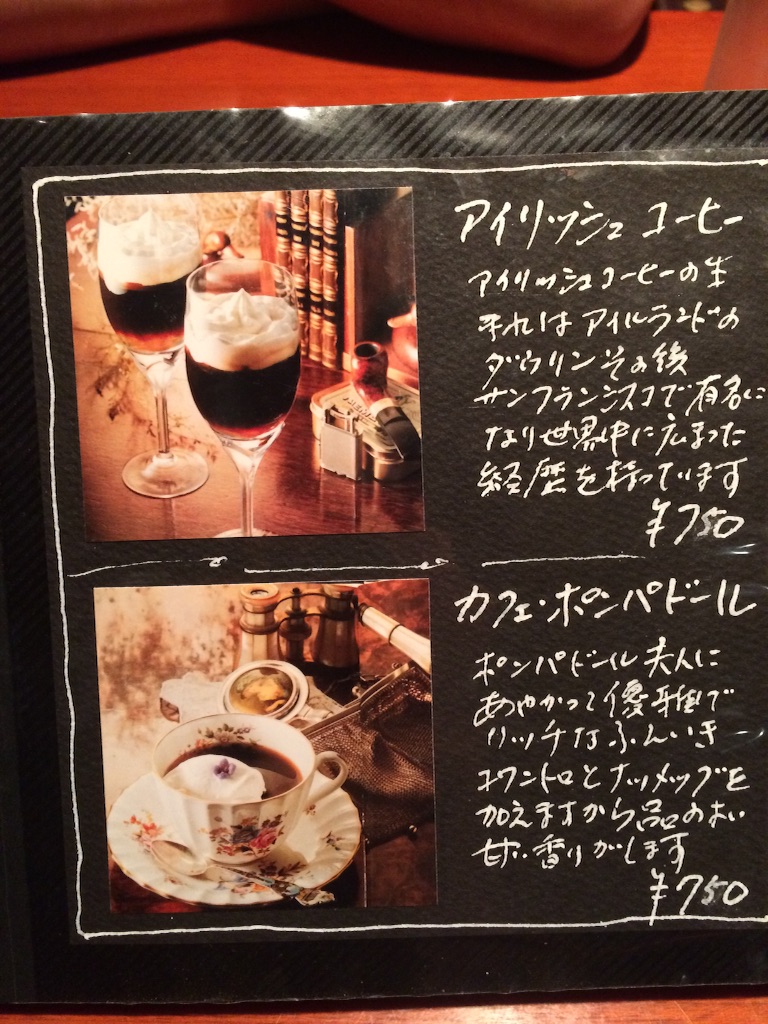 アイリッシュ コーヒー
アイリッシュコーヒーの生
まれは アイルランドの
ダウリン その後
サンフランシスコで有名に
なり世界中に広まった
経歴を持っています
¥750
カフェ・ポンパドール
ポンパドール夫人に
あやかって優雅で
リッチなふんいき
コワントロとナッツメッグを
加えますから品のよい
甘い香りがします
¥750